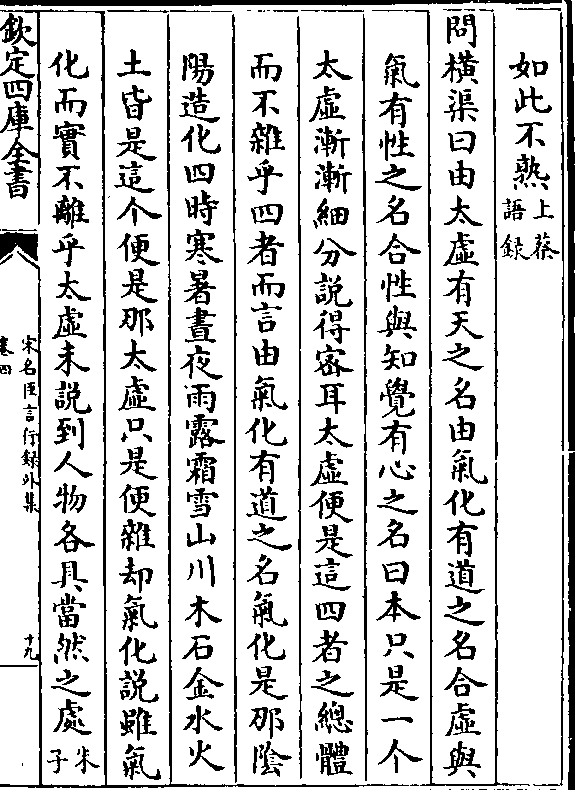 如此不熟上蔡語録
問横渠曰由太虚有天之名由氣化有道之名合虚與
氣有性之名合性與知覺有心之名曰本只是一个
太虚漸漸細分説得宻耳太虚便是這四者之總體
而不雜乎四者而言由氣化有道之名氣化是那陰
陽造化四時寒暑晝夜雨露霜雪山川木石金水火
土皆是這个便是那太虚只是便雜却氣化説雖氣
化而實不離乎太虚未説到人物各具當然之處朱子
欽定四庫全書
宋名臣言行録外集
卷四
十九